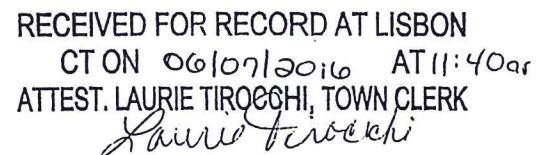 RECEIVED FOR RECORD AT LISBON
CT ON 06/07/2016 AT 11:40am
ATTEST. LAURIE TIROCCHI, TOWN CLERK
Laurie Tirocchi